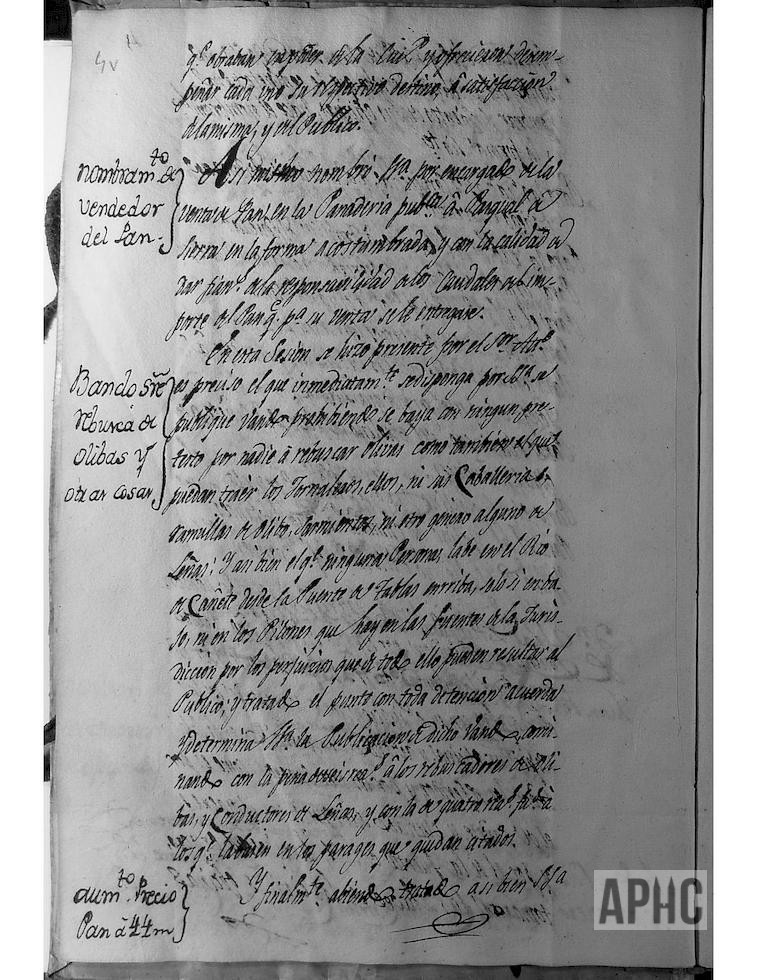 4v
qᵉ obraban en poder de la Ciuᵈ y ofrecieron desem-
peñar cada uno su respectivo destino, â satisfazⁿ
de la misma, y del Publico.
nombramᵗᵒ de
vendedor
del Pan-
Asi mismo nombró Sᵃ por encargado de la
venta de Pan, en la Panaderia pubᶜᵃ â Pasqual de
Sierra en la forma acostumbrada, y con la calidad de
dar fianᶻ de la responsavilidad de los Caudales del im-
porte del Pan qᵉ pᵃ su venta se le entregase.
Bando sʳᵉ
rebusca de
olibas y
otras cosas
En esta Sesion se hizo presente por el Sᵒʳ
es preciso el que inmediatamᵗᵉ se disponga por Sᵃ se
publique Vando prohibiendo se baya con ningun pre-
testo por nadie â rebuscar olivas como tambien el qᵉ
puedan traer los Jornaleros, ellos, ni sus Caballerias
ramullas de olibo, sarmientos, ni otro genero alguno de
Leñas: Y asi bien el qᵉ ninguna Persona labe en el Rio
de Cañete desde la Puente de Tablas enrriba, solo si en ba-
jo, ni en los Pilones que hay en las fuentes de la Juris-
diccion por los perjuizios que de todo ello pueden resultar al
Publico; y tratado el punto con toda detencion acuerda
y determina Sᵃ la Publicacion de dicho Vando, comi-
nando con la pena de seis reaˢ â los rebuscadores de Oli-
bas, y Conductores de Leñas, y con la de quatro reaˢ
los qᵉ labasen en los parages que quedan citados.
aumᵗᵒ Precio
Pan â 44 m
Y finalmᵗᵉ abiendo tratado asi bien Sᵃ
APHC